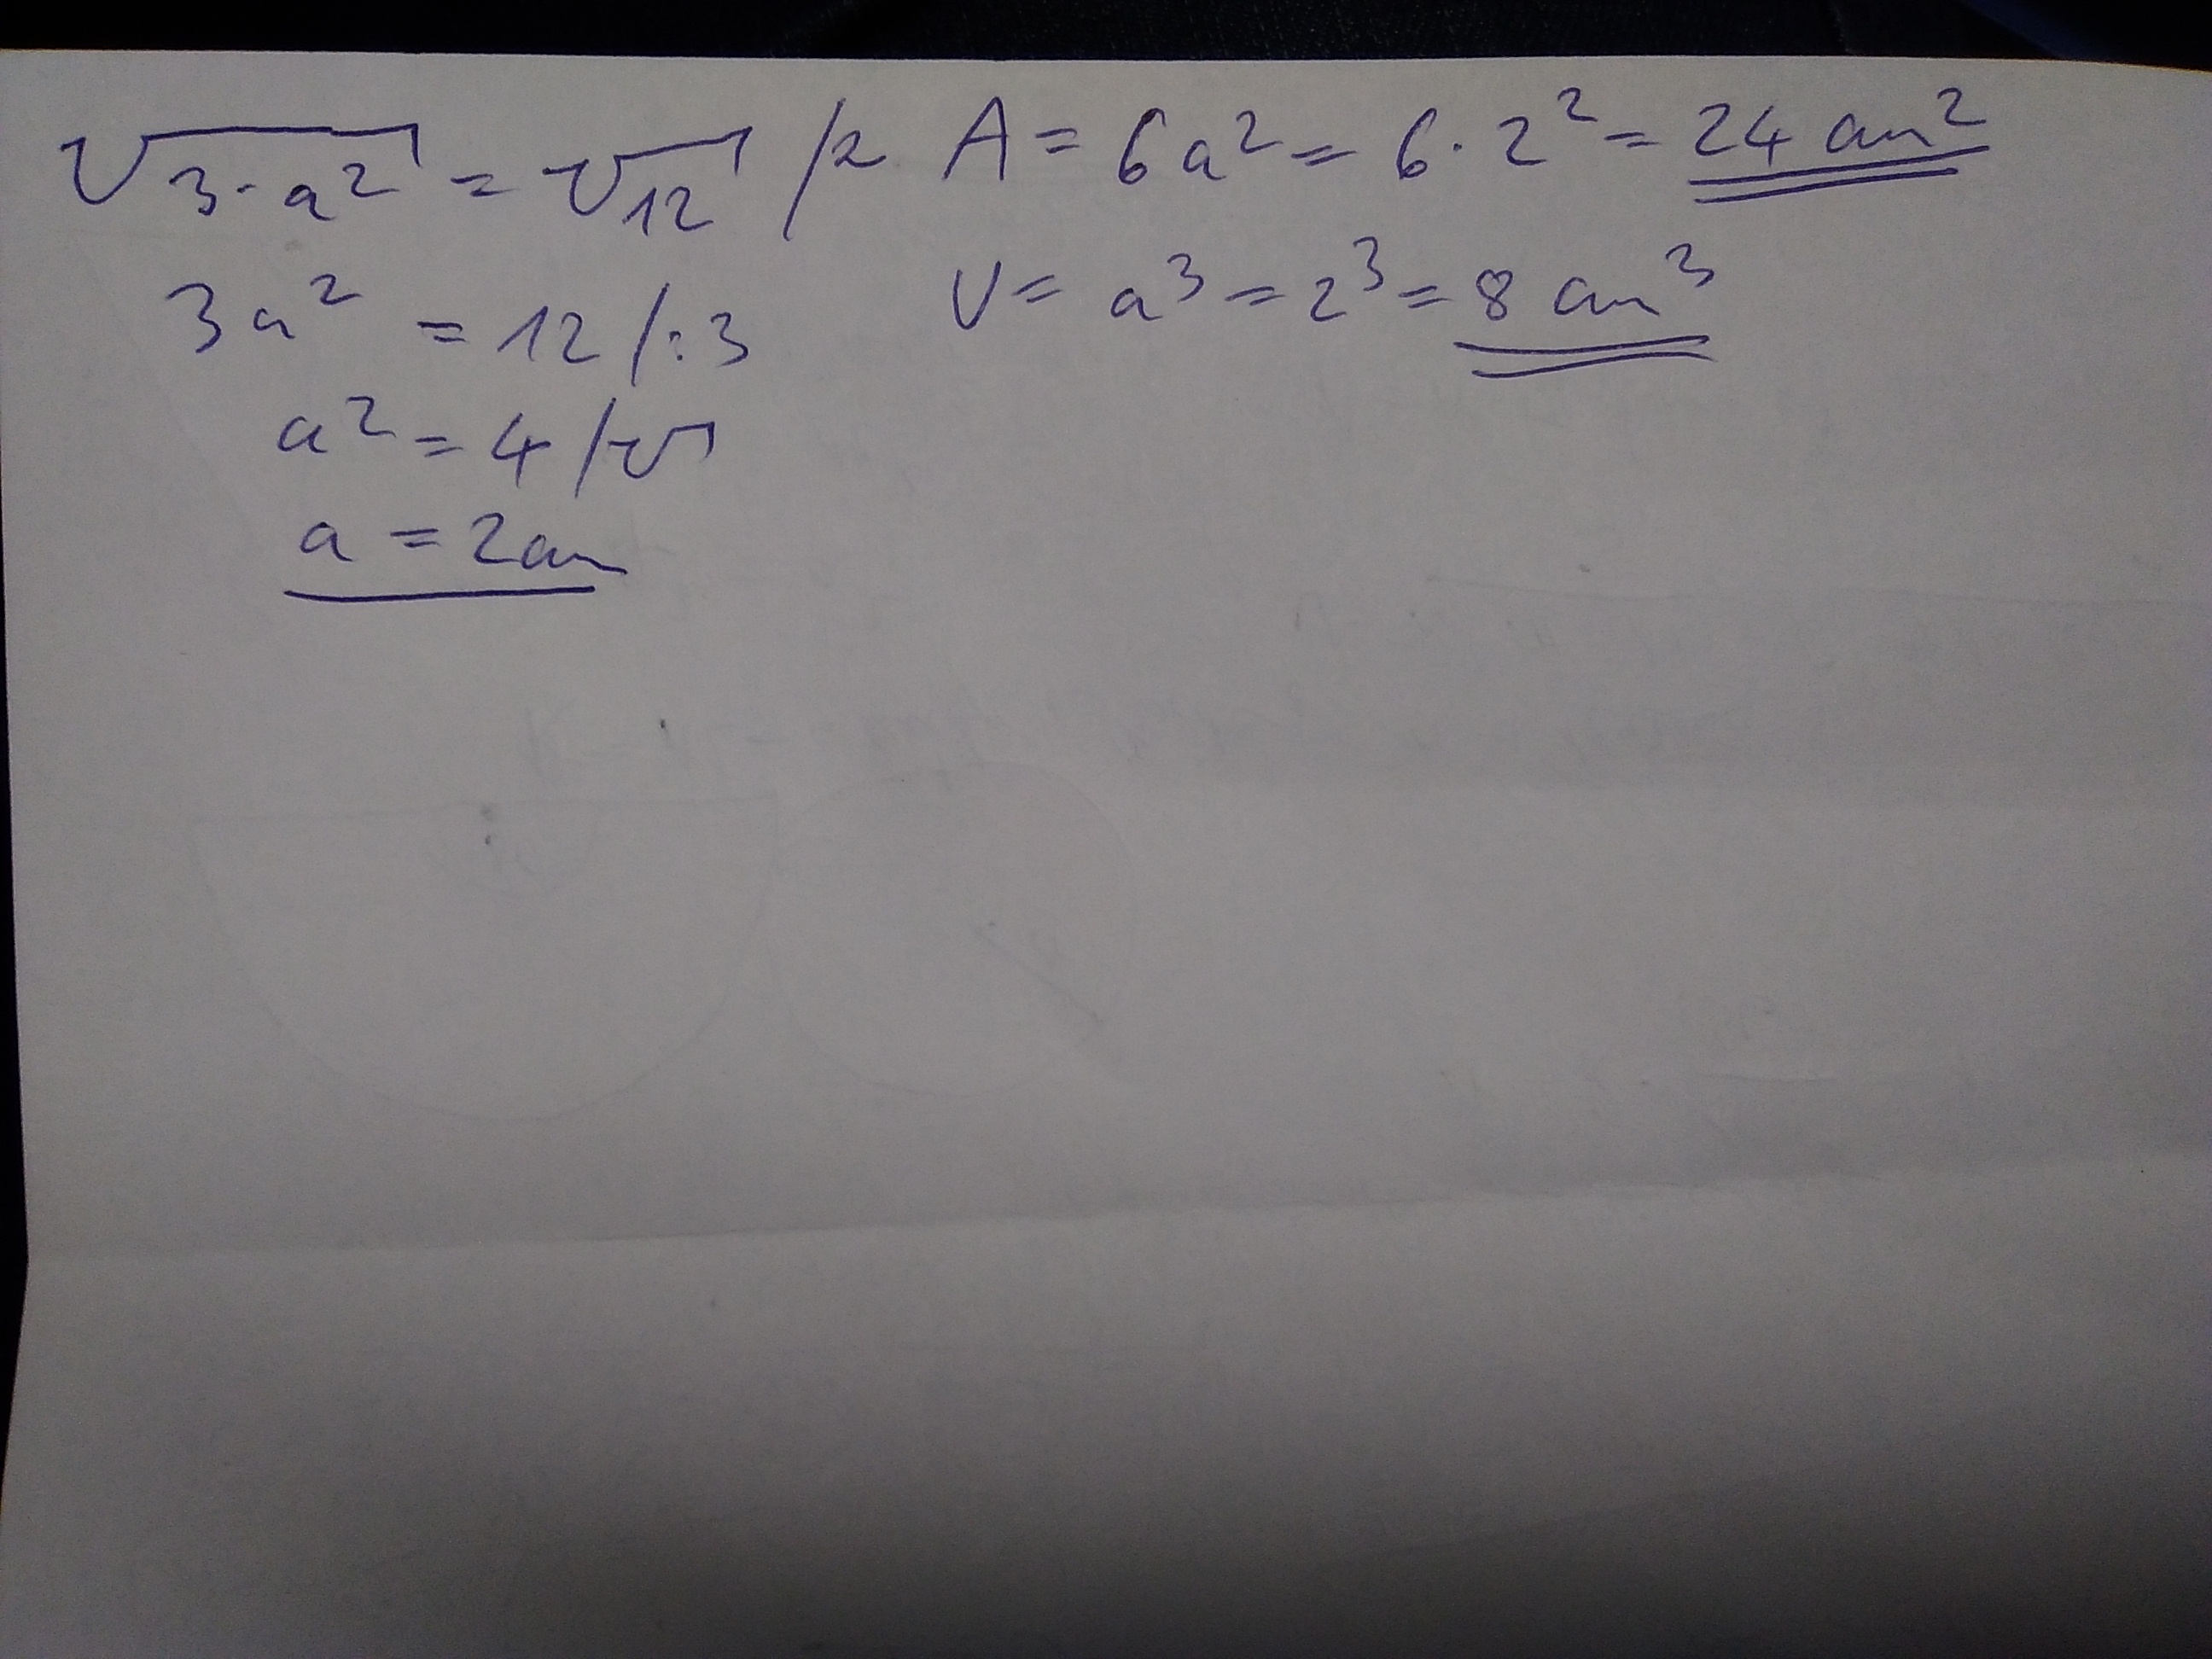 √3·a² = √12 /²
3a² = 12 /:3
a² = 4 /√
a = 2cm
A = 6a² = 6·2² = 24 cm²
V = a³ = 2³ = 8 cm³